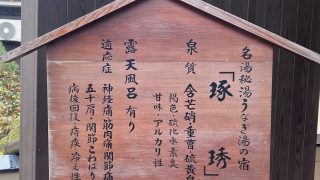 名湯秘湯うなぎ湯の宿
「琢琇」
泉質 含芒硝重曹硫黄泉
褐色・硫化水素臭
甘味・アルカリ性
露天風呂有り
適応症 神経痛筋肉痛関節痛
五十肩・関節こわばり
病後回復・痔疾・冷え性